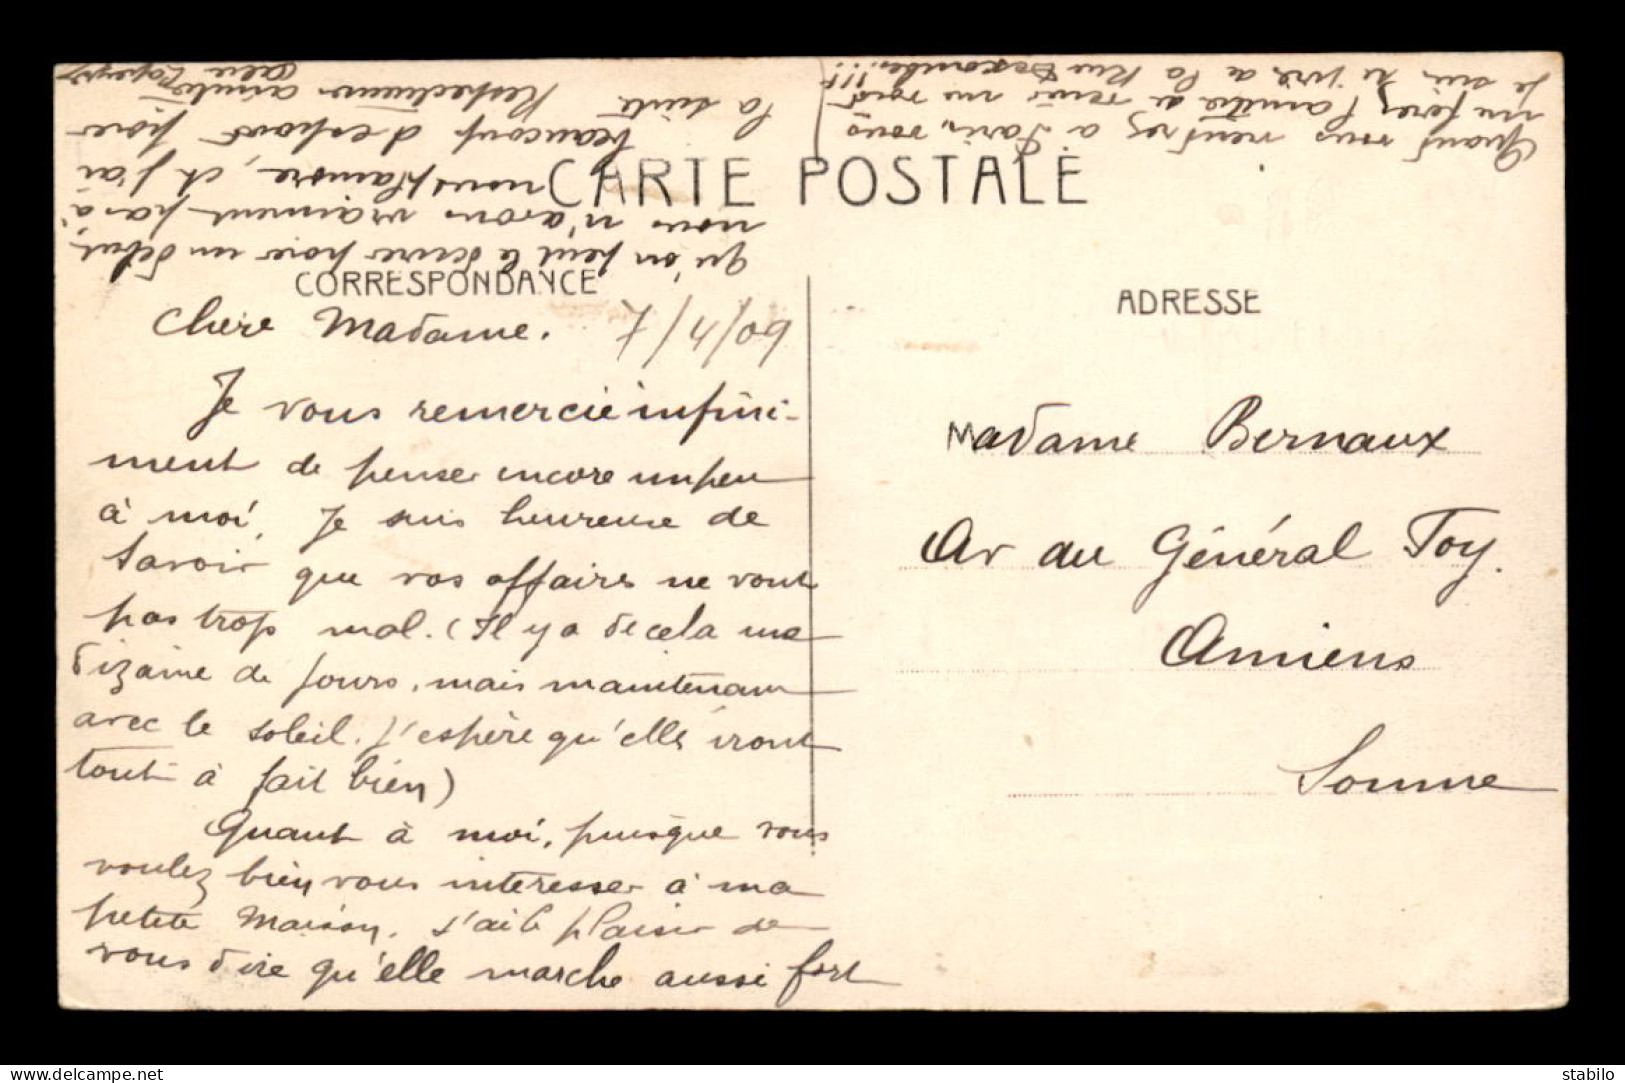 CARTE POSTALE
CORRESPONDANCE
ADRESSE
Chère Madame. 7/4/09
Je vous remercie infini-
ment de penser encore un peu
à moi. Je suis heureuse de
savoir que vos affaires ne vont
pas trop mal. (Il y a de cela une
dizaine de jours, mais maintenant
avec le soleil, j'espère qu'elles iront
tout à fait bien)
Quant à moi, puisque vous
voulez bien vous intéresser à ma
petite Maison, j'ai le plaisir de
vous dire qu'elle marche aussi fort
qu'on peut le désirer pour un début,
nous n'avons vraiment pas à
nous plaindre, et j'ai
beaucoup d'espoir pour
la suite. Respectueuses amitiés
Quand vous rentrez à Paris, vous
me ferez l'amitié de venir me voir
je suis à la Rue !!!
Madame Bernaux
Av du Général Foy.
Amiens
Somme
delcampe.net
stabilo